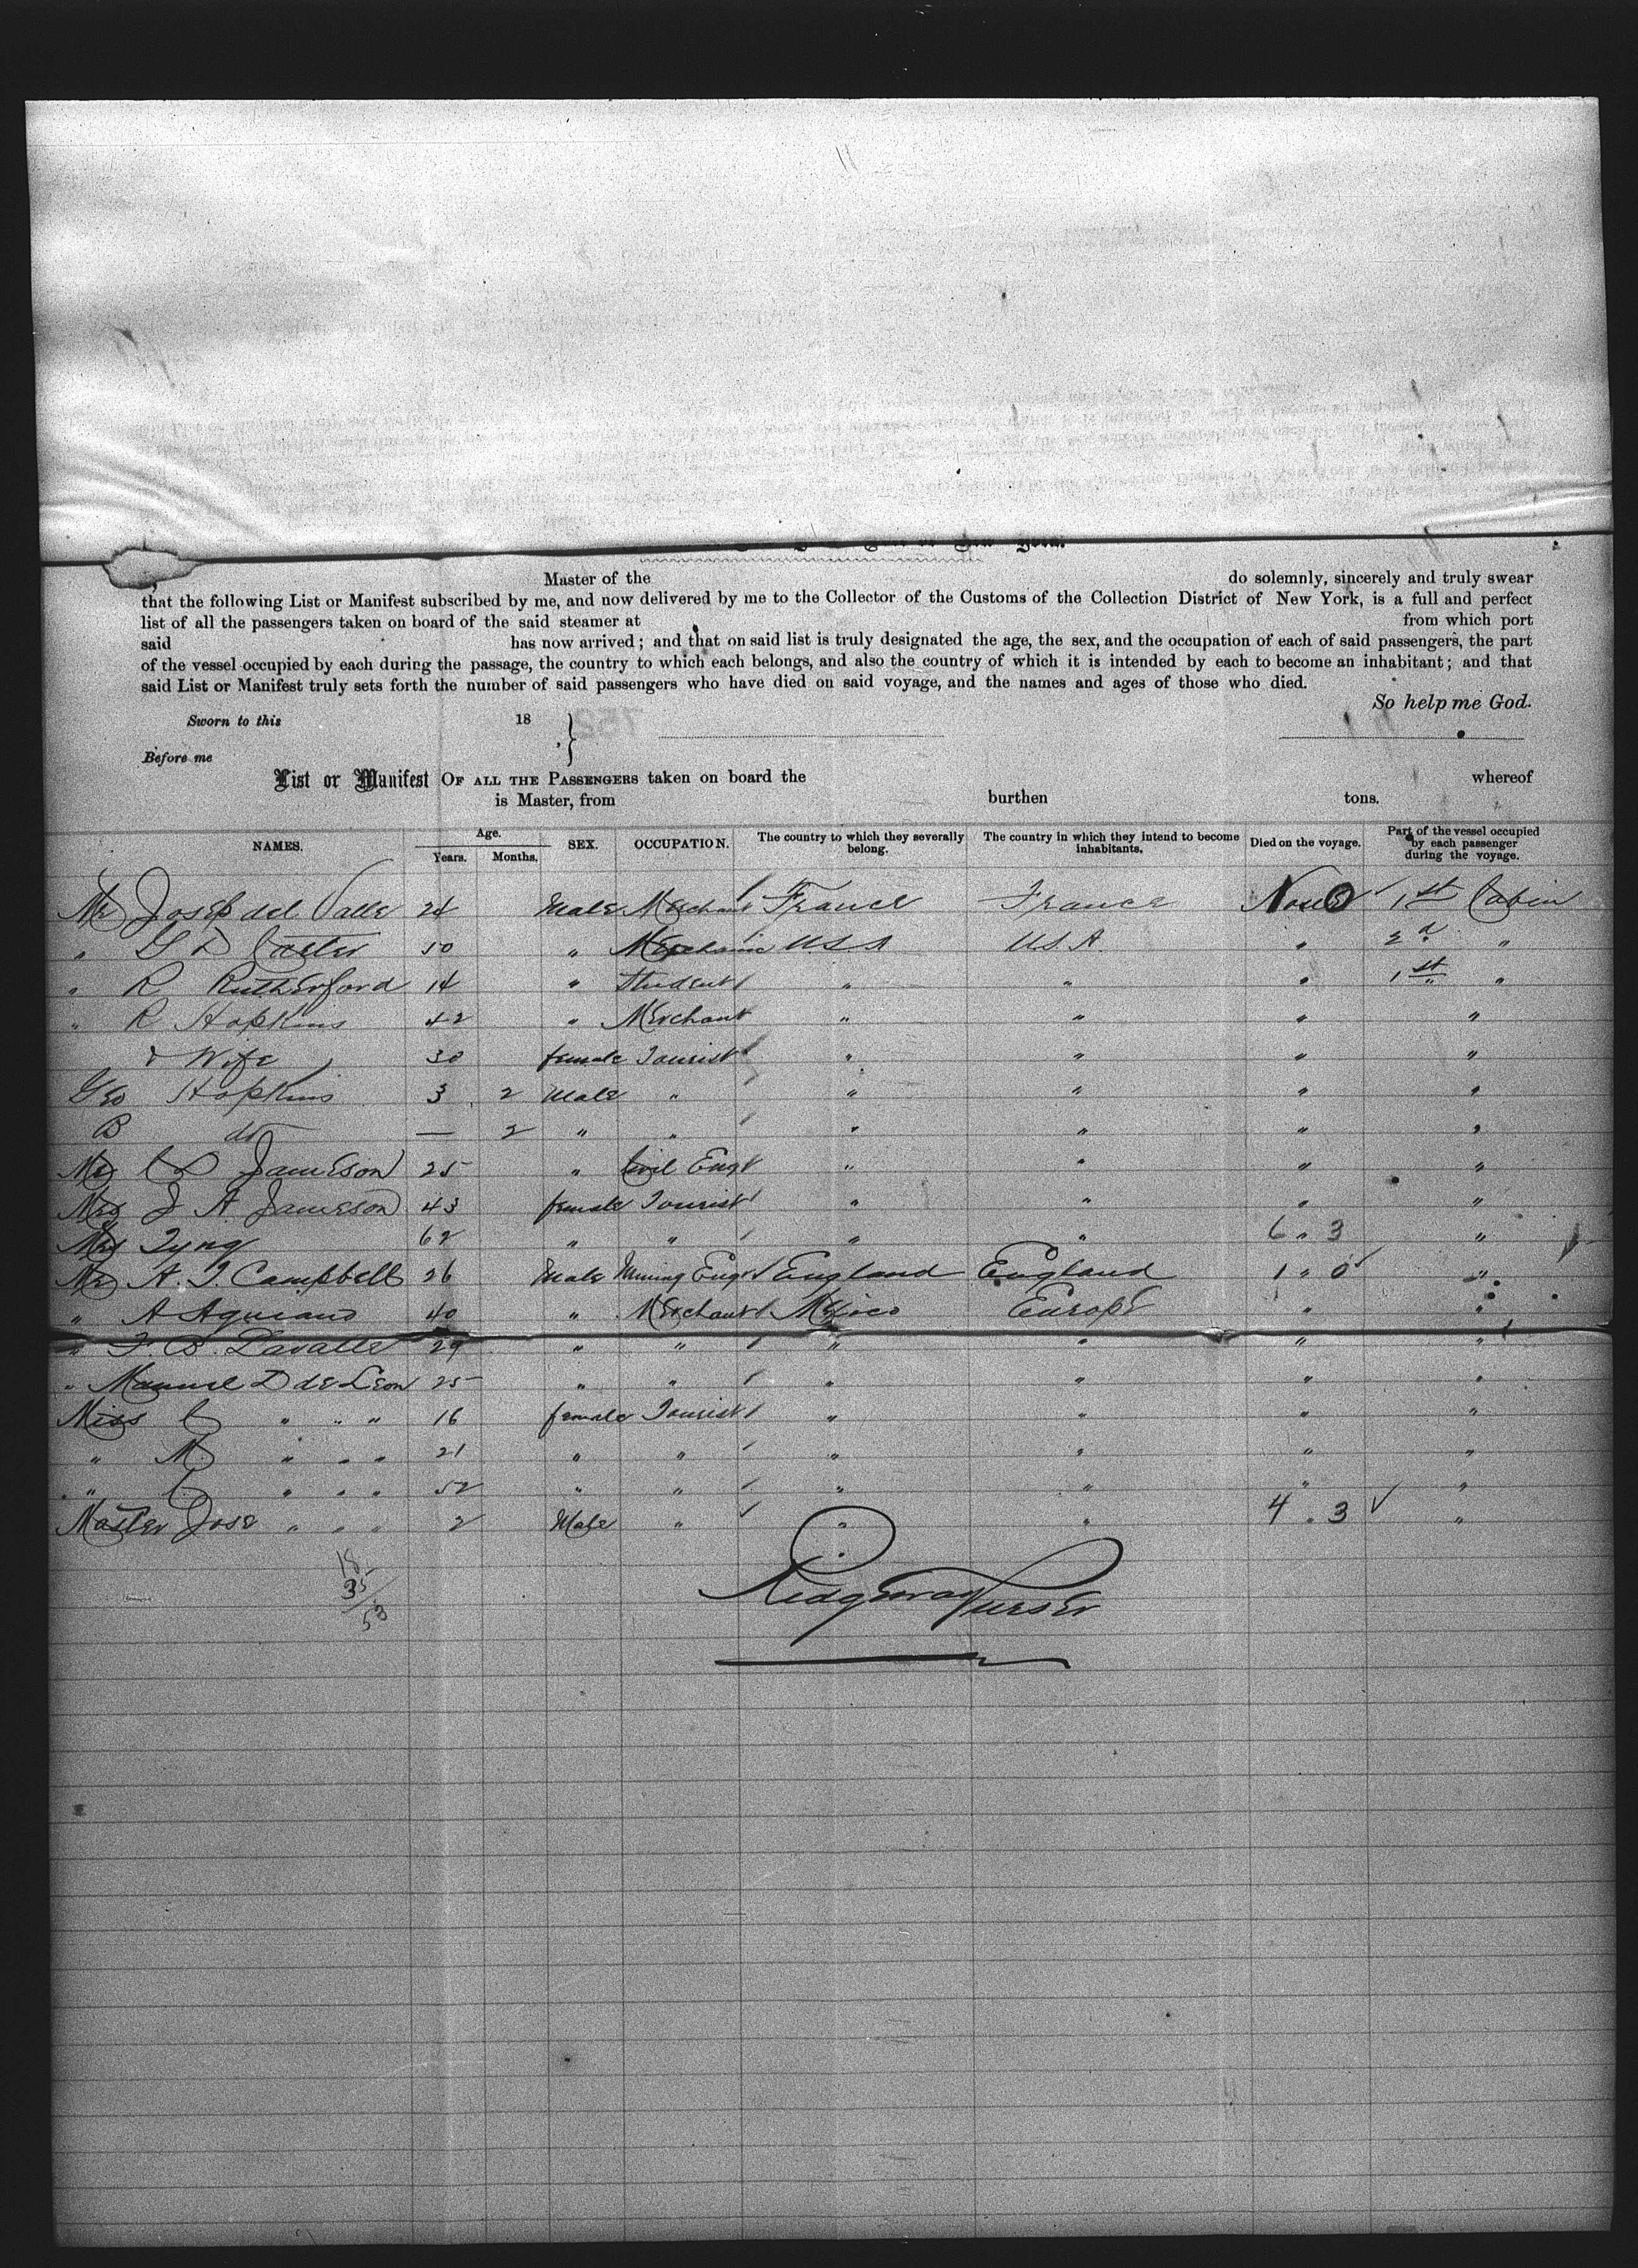 Master of the do solemnly, sincerely and truly swear
that the following List or Manifest subscribed by me, and now delivered by me to the Collector of the Customs of the Collection District of New York, is a full and perfect
list of all the passengers taken on board of the said steamer at from which port
said has now arrived; and that on said list is truly designated the age, the sex, and the occupation of each of said passengers, the part
of the vessel occupied by each during the passage, the country to which each belongs, and also the country of which it is intended by each to become an inhabitant; and that
said List or Manifest truly sets forth the number of said passengers who have died on said voyage, and the names and ages of those who died.
So help me God.
Sworn to this 18
Before me
List or Manifest OF ALL THE PASSENGERS taken on board the whereof
is Master, from burthen tons.
NAMES. Age. Years. Months. SEX. OCCUPATION. The country to which they severally belong. The country in which they intend to become inhabitants. Died on the voyage. Part of the vessel occupied by each passenger during the voyage.
Mr Josep del Valle 24 Male Merchant France France None 0 1st Cabin
" G D Carter 50 " U.S.A U.S.A " 2d "
" R Rutherford 14 " Student " " " 1st "
" R Hopkins 42 " Merchant " " " "
& Wife 30 female Tourist " " " "
Geo Hopkins 3 2 Male " " " " "
B do — 2 " " " " " "
Mr C D Jameson 25 " Civil Engr " " " "
Mrs J A Jameson 43 female Tourist " " " "
Mrs Tyng 62 " " " " 6 " 3 "
Mr A. J. Campbell 26 Male Mining Engr England England 1 " 0 "
" A 40 " Merchant Mexico Europe " "
" F. B. Lavalle 29 " " " " " "
" Manuel D de Leon 25 " " " " " "
Miss C " " " 16 female Tourist " " " "
" M. " " " 21 " " " " " "
" C. " " " 52 " " " " " "
Master Jose " " " 2 Male " " " 4 " 3 "
18
35
53
Ridgeway Purser